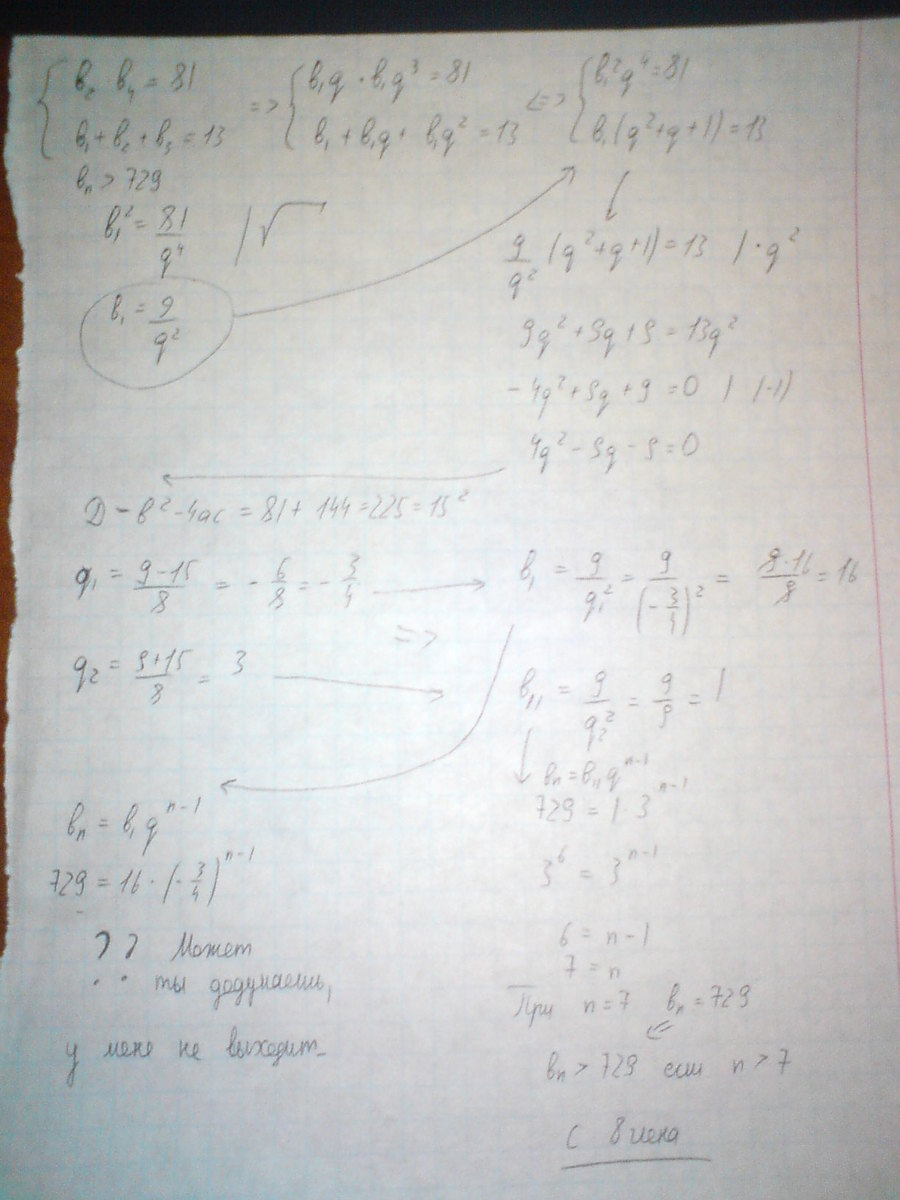 { b₂ b₄ = 81 => { b₁q · b₁q³ = 81 <=> { b₁²q⁴ = 81
b₁ + b₂ + b₃ = 13 b₁ + b₁q + b₁q² = 13 b₁(q² + q + 1) = 13
bₙ > 729
b₁² = 81/q⁴ | √
b₁ = 9/q²
9/q² (q² + q + 1) = 13 | · q²
9q² + 9q + 9 = 13q²
- 4q² + 9q + 9 = 0 | (-1)
4q² - 9q - 9 = 0
D - b² - 4ac = 81 + 144 = 225 = 15²
q₁ = (9 - 15)/8 = - 6/8 = - 3/4 → b₁ = 9/q₁² = 9/(- 3/4)² = 9·16/9 = 16
=>
q₂ = (9 + 15)/8 = 3 → b₁₁ = 9/q₂² = 9/9 = 1
bₙ = b₁₁qⁿ⁻¹
729 = 1 · 3ⁿ⁻¹
3⁶ = 3ⁿ⁻¹
6 = n - 1
7 = n
При n = 7 bₙ = 729
<=
bₙ > 729 если n > 7
С 8 члена
bₙ = b₁qⁿ⁻¹
729 = 16 · (- 3/4)ⁿ⁻¹
?? Может
ты додумаешь,
у мене не выходит